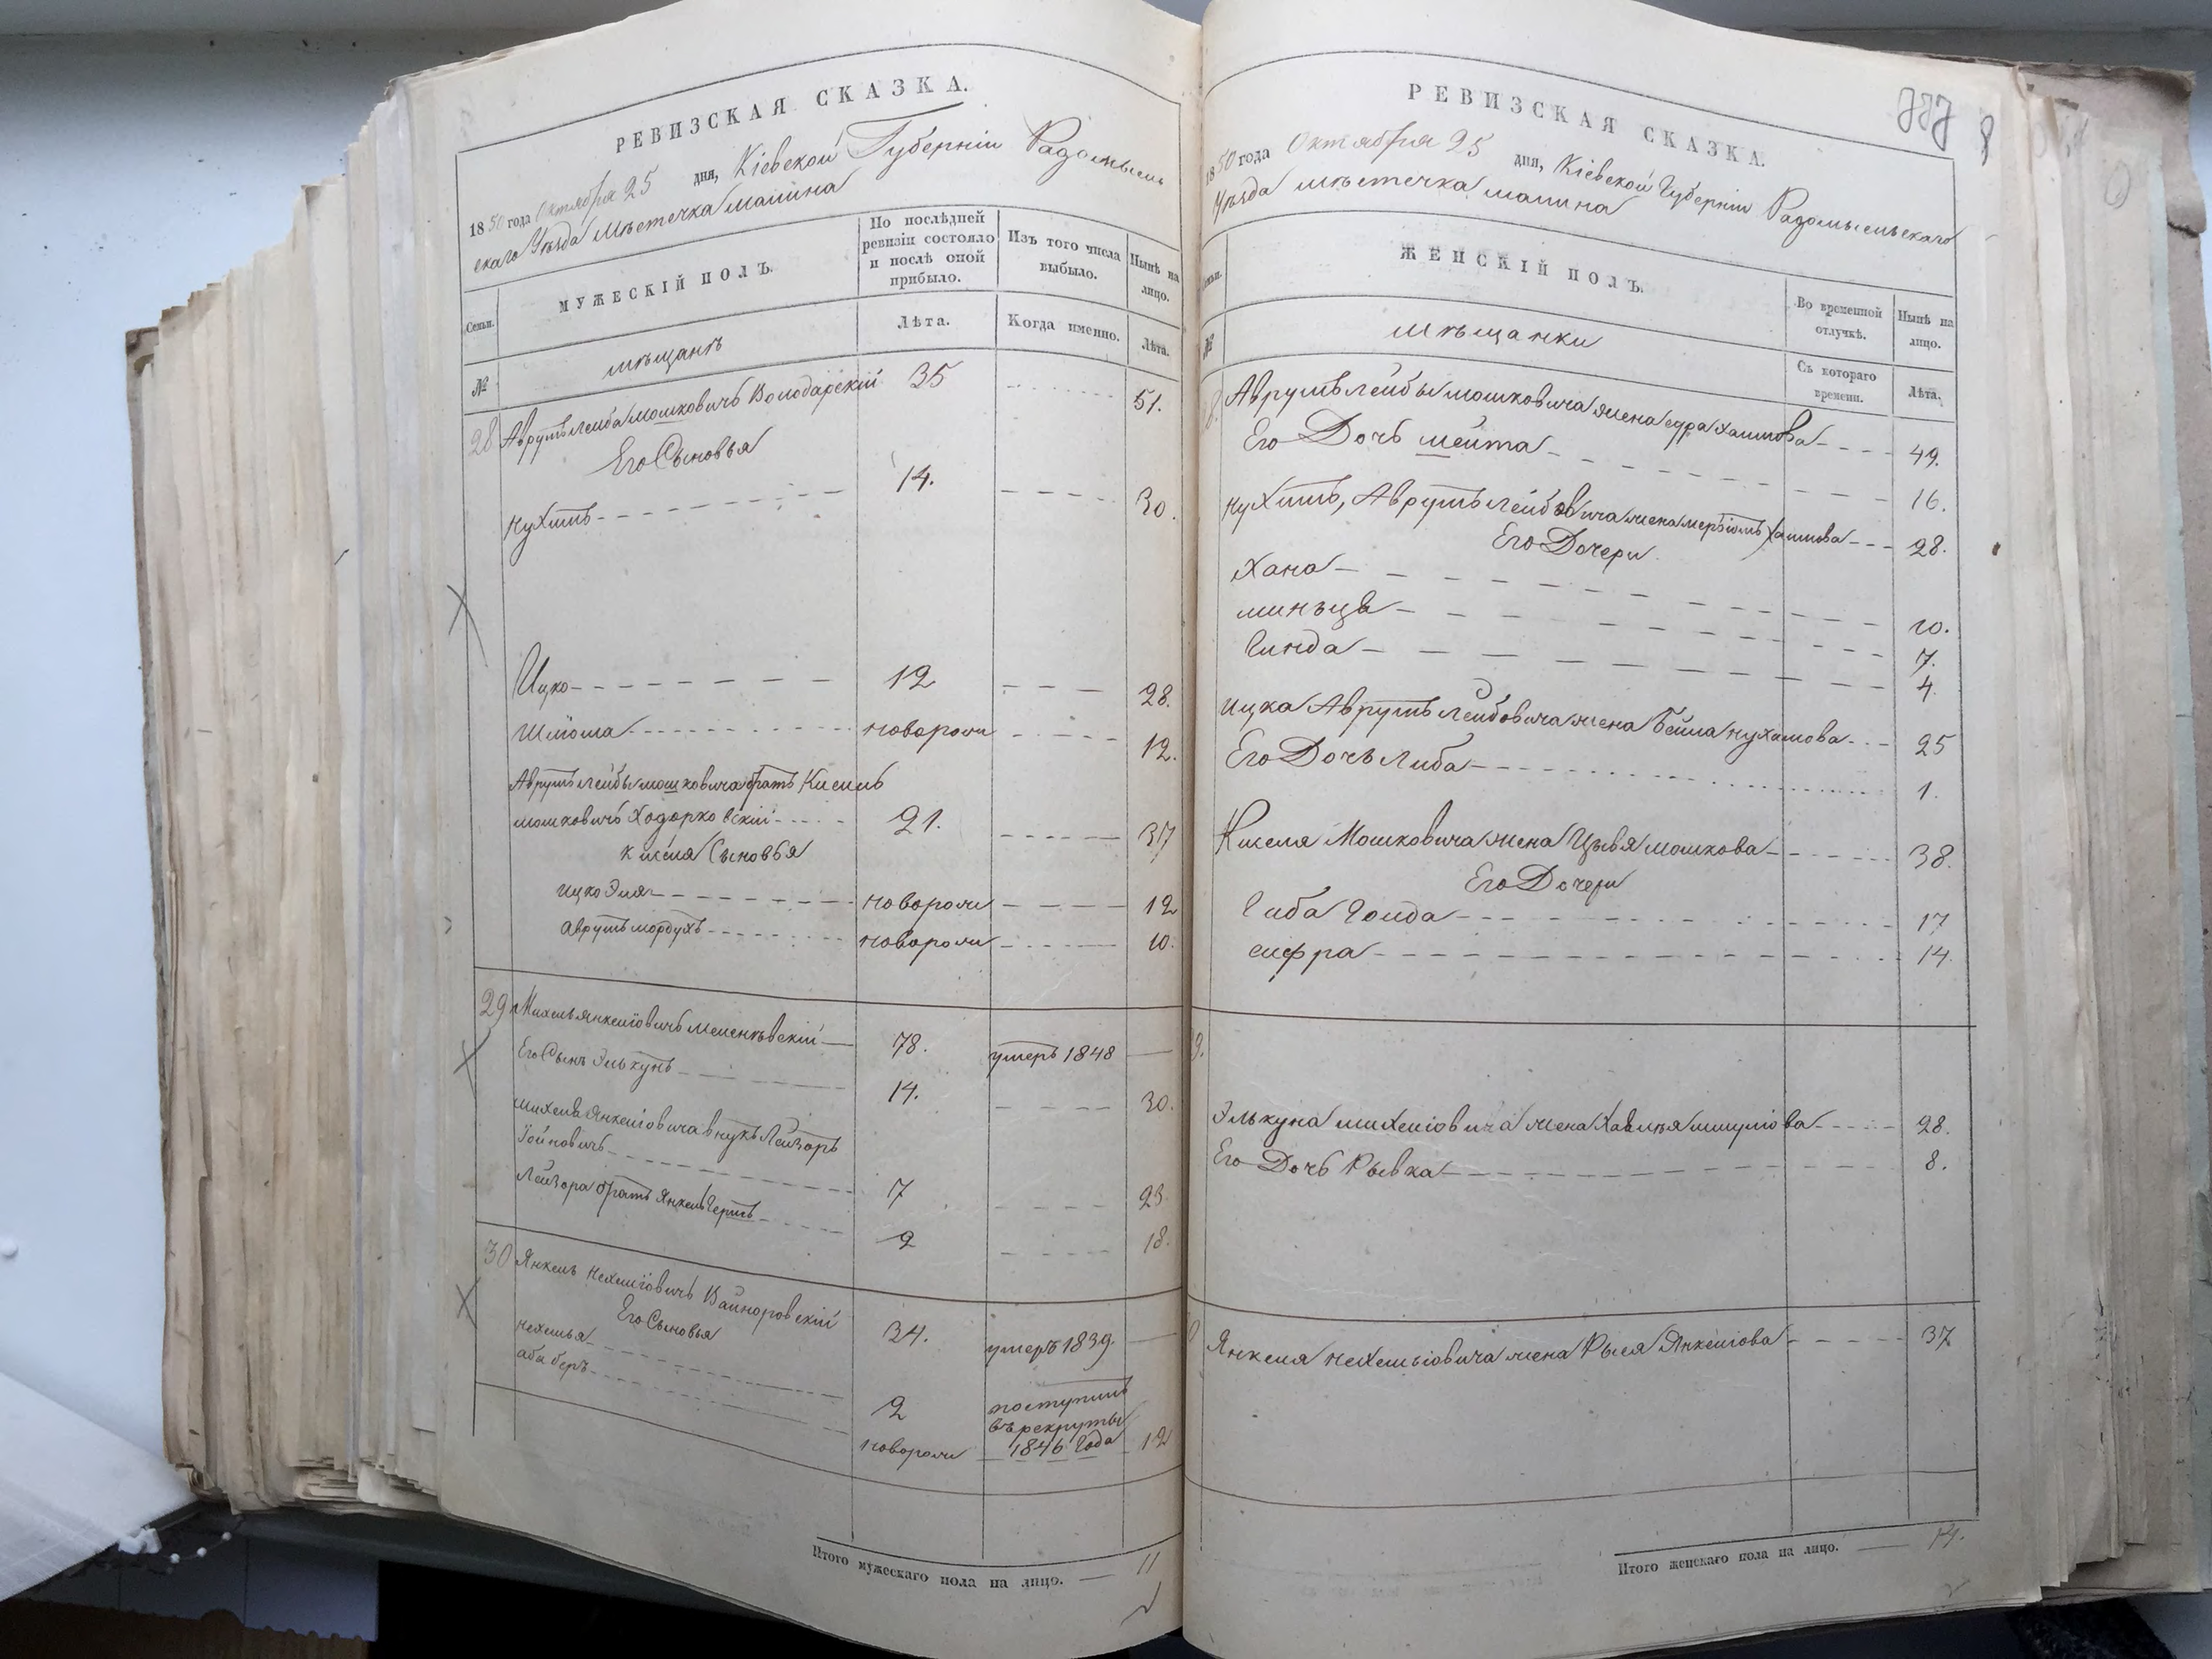 РЕВИЗСКАЯ СКАЗКА.
1850 года Октября 25 дня, Кіевской Губерніи Радомысль
скаго Уѣзда мѣстечка малина
Семьи.
МУЖЕСКІЙ ПОЛЪ.
По послѣдней ревизіи состояло и послѣ оной прибыло.
Изъ того числа выбыло.
Нынѣ на лицо.
№
мѣщанѣ
Лѣта.
Когда именно.
Лѣта.
28 Аврумъ лейба мошковичъ Володарскій 35 51.
Его Сыновья
нухимъ 14. 30.
Ицко 12 28.
Шлiома новорож 12.
Аврумъ лейбы мошковича братъ Кисель
мошковичъ Ходорковскій 21. 37
киселя Сыновья
ицко Эля новорож 12
аврумъ мордухъ новорож 10.
29 Михель янкеліовичъ Меленѣвскій 78. умеръ 1848
Его Сынъ Элькунъ 14. 30.
михеля Янкеліовича внукъ Лейзоръ
Іойновичъ 7 23.
Лейзора братъ Янкель Гершъ 2 18.
30 Янкель нехеміовичъ Вайноровскій 34. умеръ 1839.
Его Сыновья
нехемья 2 поступилъ
въ рекруты
1846 Года
аба беръ новорож 12
Итого мужескаго пола на лицо. 11
РЕВИЗСКАЯ СКАЗКА.
1850 года Октября 25 дня, Кіевской Губерніи Радомысльскаго
Уѣзда мѣстечка малина
Семьи.
ЖЕНСКІЙ ПОЛЪ.
Во временной отлучкѣ.
Нынѣ на лицо.
№
мѣщанки
Съ котораго времени.
Лѣта.
Аврумъ лейбы мошковича жена едра хаимова 49.
Его Дочь мейта 16.
нухимъ, Аврумъ лейбовича жена меріомъ хаимова 28.
Его Дочери
Хана 10.
миньця 7.
Гинда 4.
ицка Аврумъ лейбовича жена Бейла нухимова 25
Его Дочь Либа 1.
Киселя Мошковича жена Цывя мошкова 38.
Его Дочери
Гиба Голда 17
сифра 14.
9.
Элькуна михеліовича жена Хавеля шмуліова 28.
Его Дочь Рывка 8.
Янкеля нехеміовича жена Рыся Янкеліова 37
Итого женскаго пола на лицо. 14.